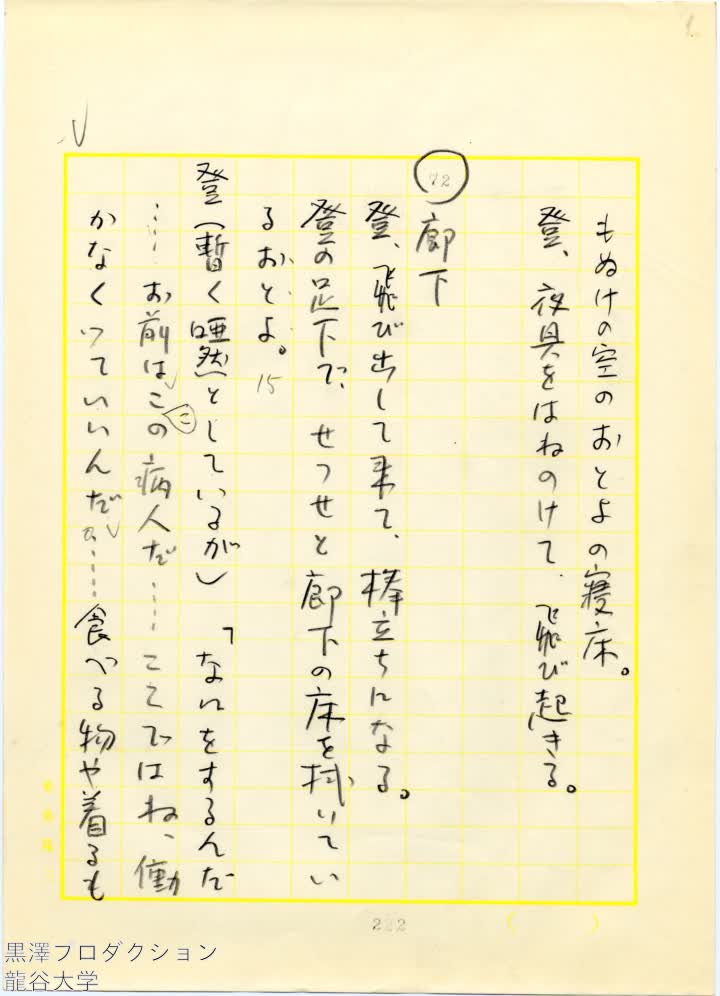 もぬけの空のおとよの寝床。
登、夜具をはねのけて、飛び起きる。
72
廊下
登、飛び出して来て、棒立ちになる。
登の足下で、せっせと廊下の床を拭いてい
るおとよ。
15
登（暫く唖然としているが）「なにをするんだ
……お前はこの病人だ……ここではね、働
こ
かなくっていいんだ……食べる物や着るも
222
黒澤プロダクション
龍谷大学